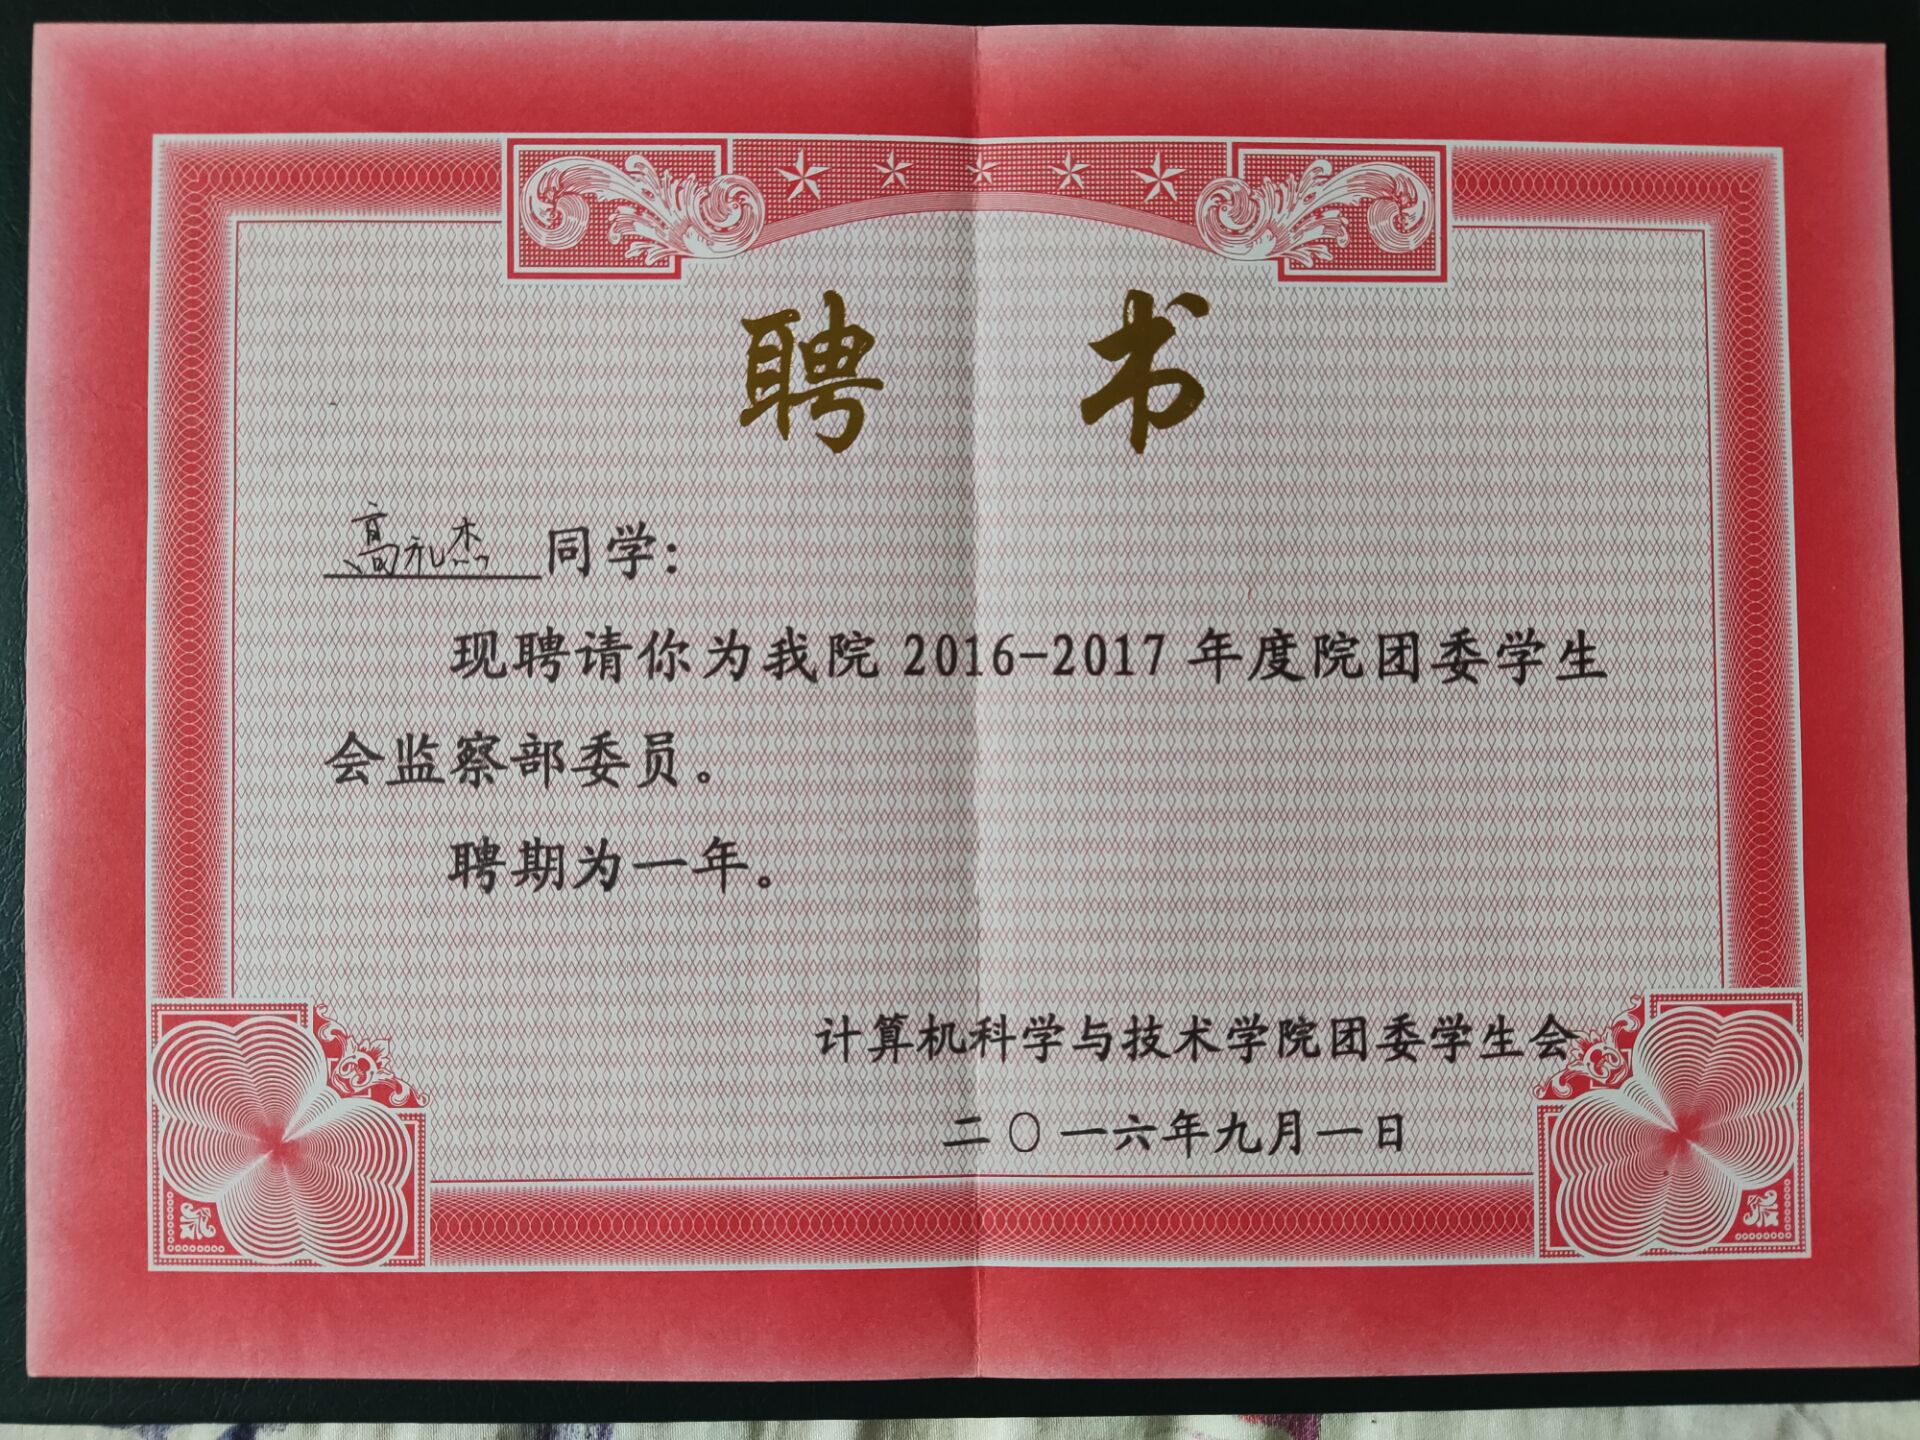 聘书
高礼杰同学：
现聘请你为我院2016-2017年度院团委学生
会监察部委员。
聘期为一年。
计算机科学与技术学院团委学生会
二〇一六年九月一日